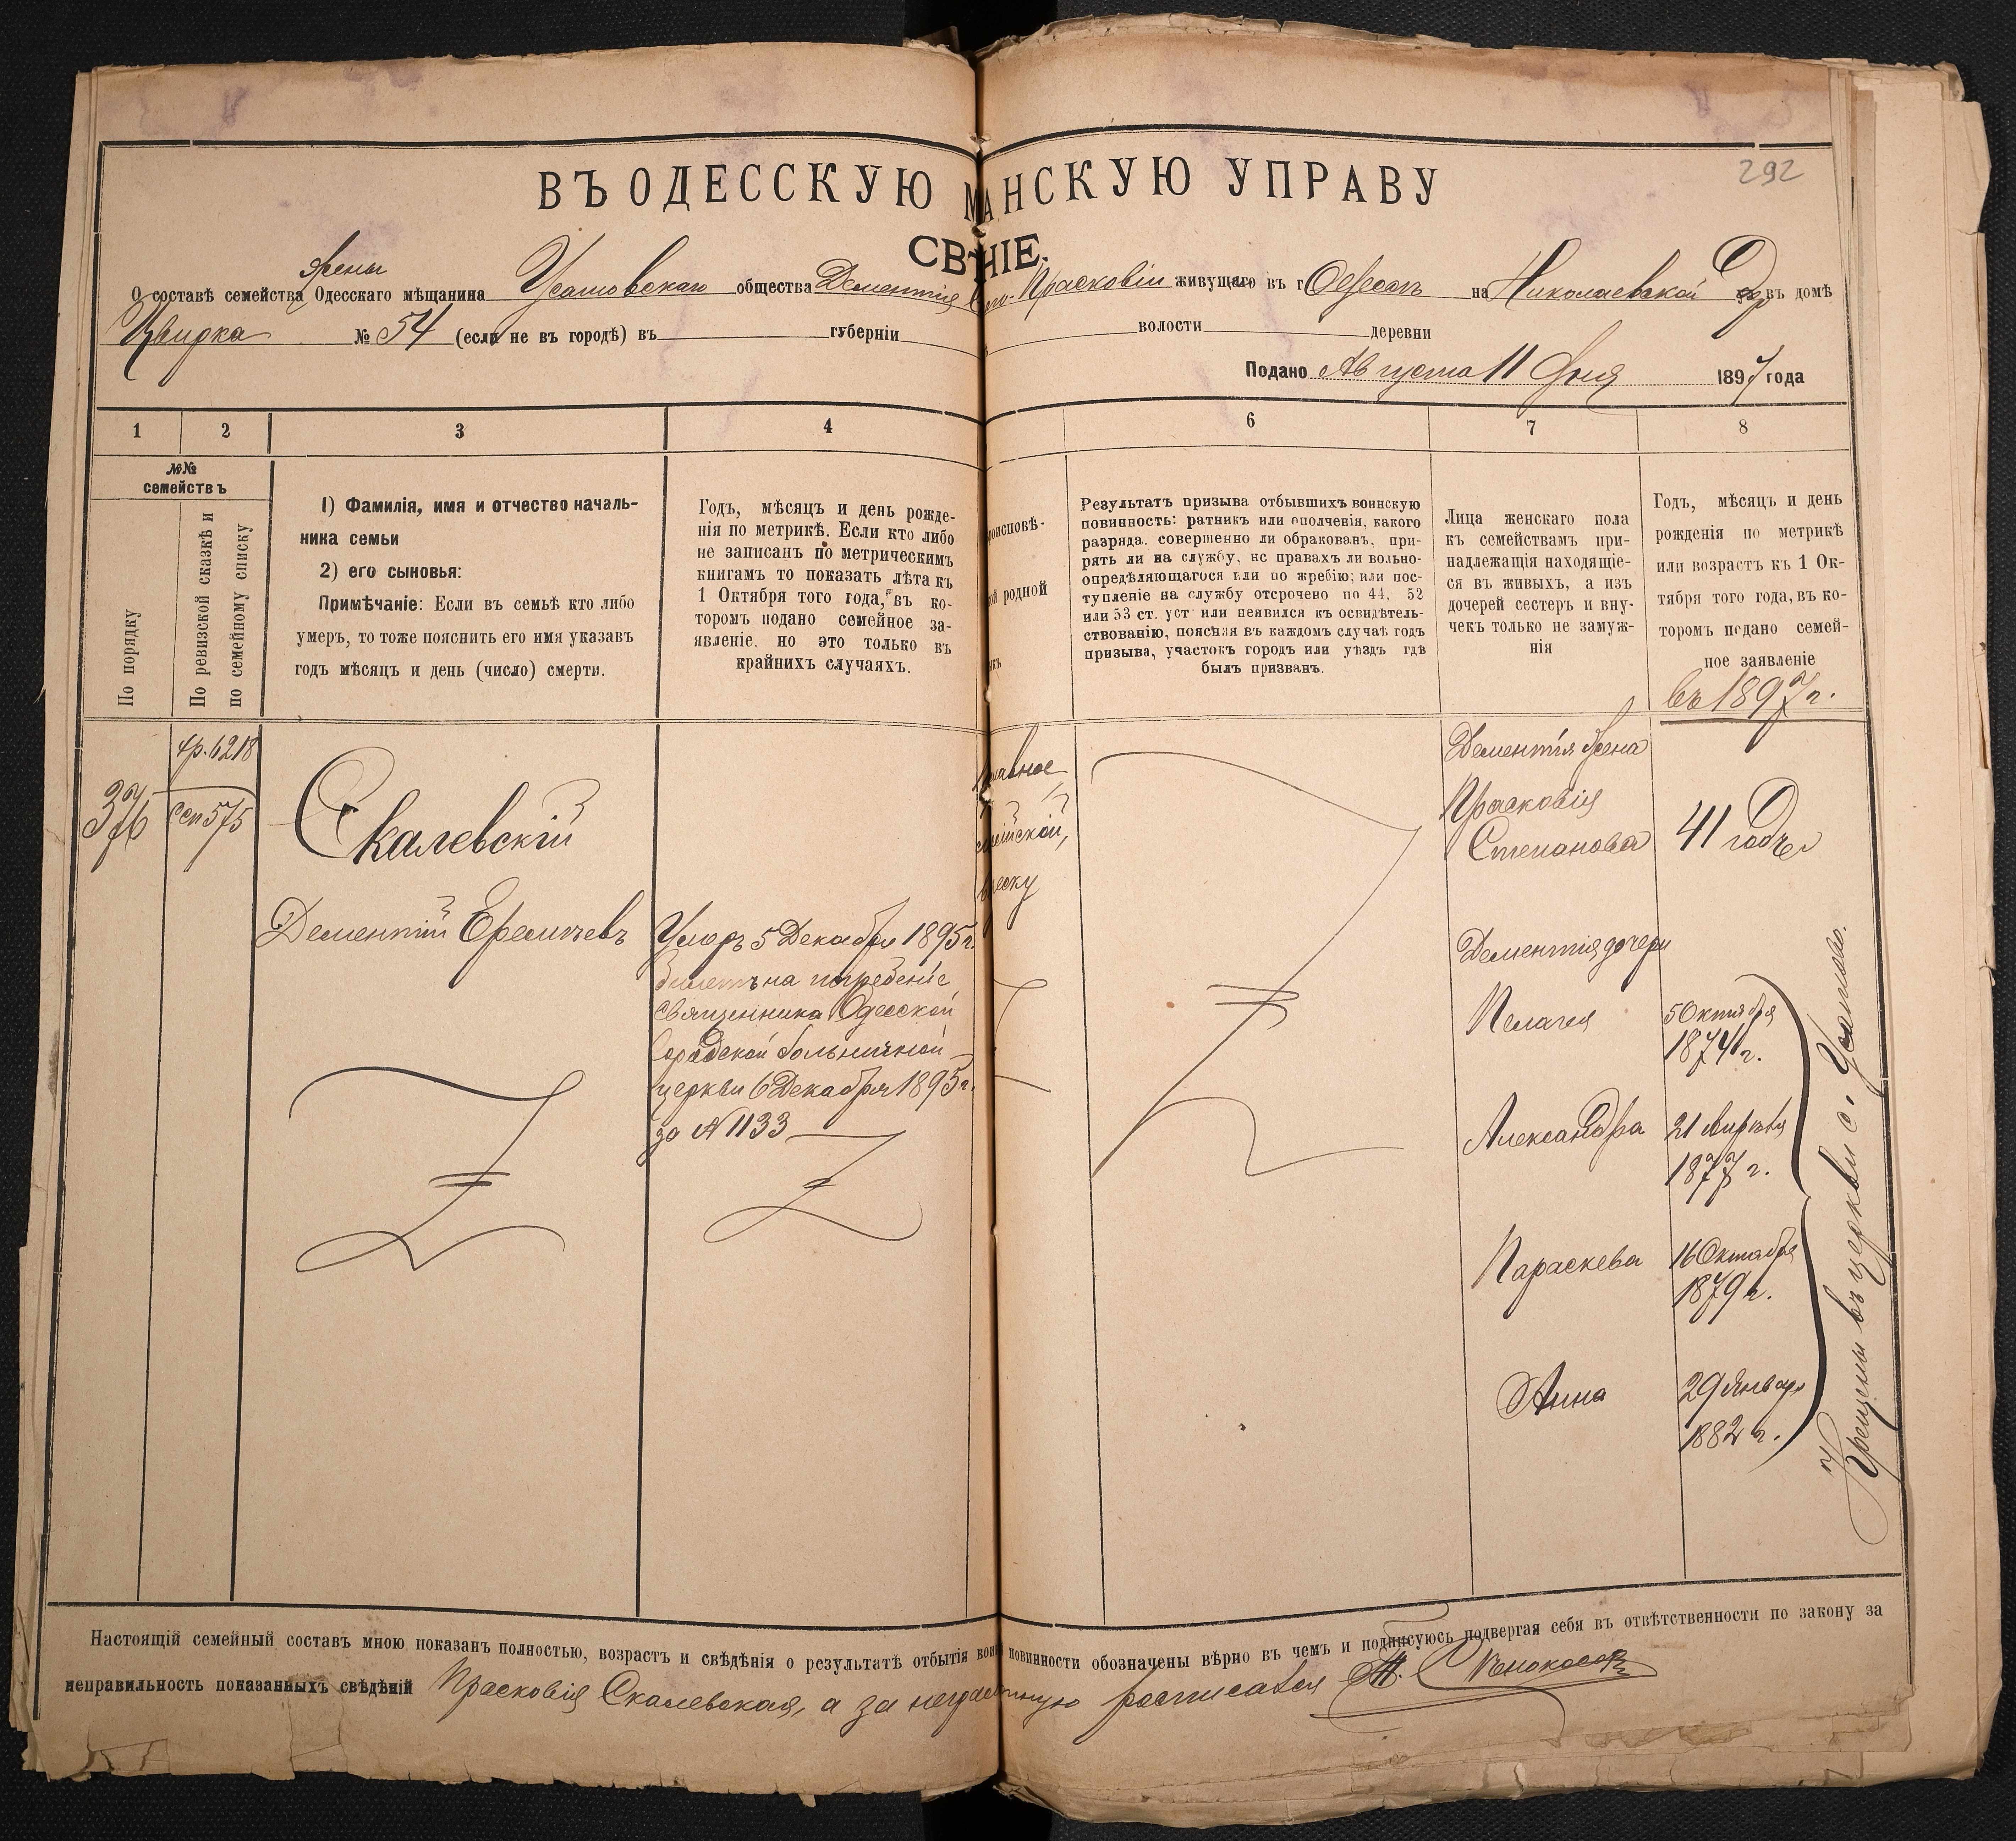 292
ВЪ ОДЕССКУЮ М АНСКУЮ УПРАВУ
СВ НІЕ.
жены
О составѣ семейства Одесскаго мѣщанина Усатовскаго общества Дементія Прасковіи живущаго въ г Одессѣ на Николаевской въ домѣ
№ 54 (если не въ городѣ) въ губерніи волости деревни
Подано Августа 11 дня 1897 года
1 2 3 4 6 7 8
№№
семействъ
По порядку
По ревизской сказкѣ и
по семейному списку
1) Фамилія, имя и отчество началь-
ника семьи
2) его сыновья:
Примѣчаніе: Если въ семьѣ кто либо
умеръ, то тоже пояснить его имя указавъ
годъ мѣсяцъ и день (число) смерти.
Годъ, мѣсяцъ и день рожде-
нія по метрикѣ. Если кто либо
не записанъ по метрическимъ
книгамъ то показать лѣта къ
1 Октября того года, въ ко-
торомъ подано семейное за-
явленіе. но это только въ
крайнихъ случаяхъ.
роисповѣ-
ой родной
Результатъ призыва отбывшихъ воинскую
повинность: ратникъ или ополченія, какого
разряда. совершенно ли обракованъ, при-
рять ли на службу, нс правахъ ли вольно-
опредѣляющагося или по жребію; или пос-
тупленіе на службу отсрочено по 44, 52
или 53 ст. уст или неявился къ освидѣтель-
ствованію, поясняя въ каждомъ случаѣ годъ
призыва, участокъ городъ или уѣздъ гдѣ
былъ призванъ.
Лица женскаго пола
къ семействамъ при-
надлежащія находящіе-
ся въ живыхъ, а изъ
дочерей сестеръ и вну-
чекъ только не замуж-
нія
Годъ, мѣсяцъ и день
рожденія по метрикѣ
или возрастъ къ 1 Ок-
тября того года, въ ко-
торомъ подано семей-
ное заявленіе
въ 1897 г.
376
6218
575
Скалевскій
Дементій Еремѣевъ
Умеръ 5 Декабря 1895 г.
билетъ на погребеніе
священника Одесской
Городской больничной
церкви 6 Декабря 1895 г.
за № 1133
Дементія жена
Прасковія
Степанова
41 годъ
Дементія дочери
Пелагея
5 Октября
1874 г.
Александра
21 Апрѣля
1877 г.
Параскева
16 Октября
1879 г.
Анна
29 Января
1882 г.
Крещены въ церкви с. Усатово.
Настоящій семейный составъ мною показанъ полностью, возрастъ и свѣдѣнія о результатѣ отбытія воин повинности обозначены вѣрно въ чемъ и подписуюсь подвергая себя въ отвѣтственности по закону за
неправильность показанныхъ свѣдѣній Прасковія Скалевская, а за неграмотную росписался